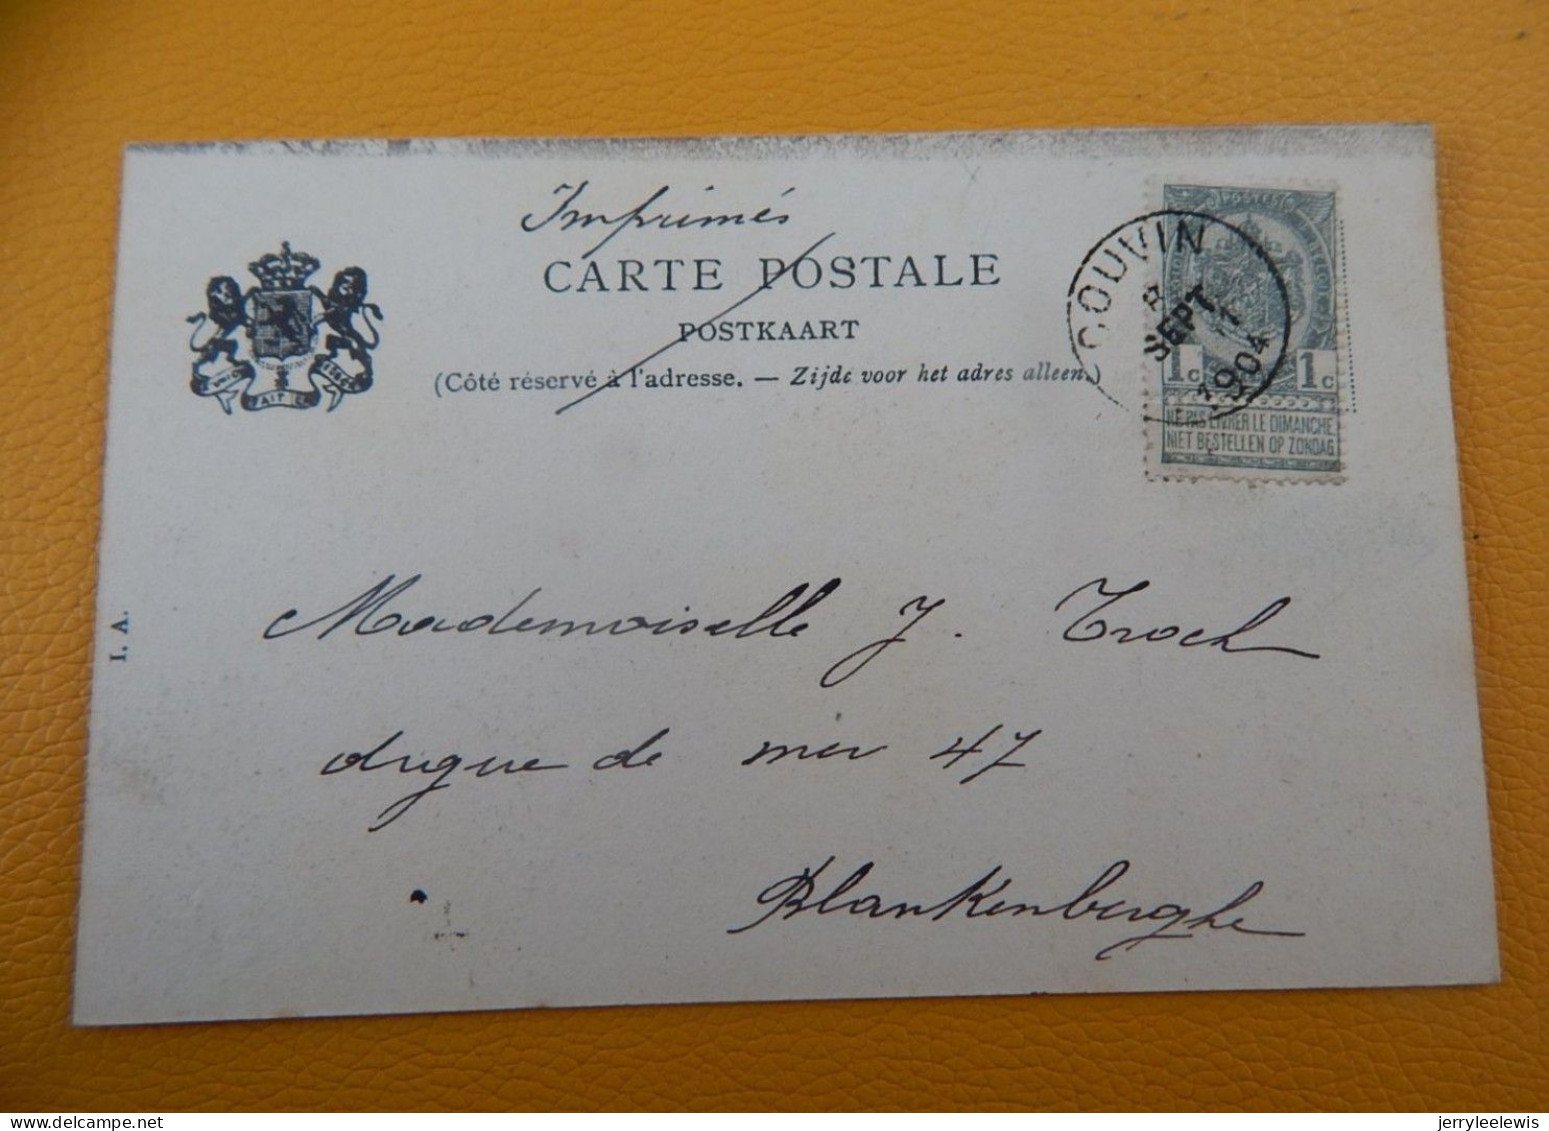 Imprimés
CARTE POSTALE
POSTKAART
(Côté réservé à l'adresse. — Zijde voor het adres alleen.)
COUVIN
8
SEPT
11
1904
1c 1c
NE PAS LIVRER LE DIMANCHE
NIET BESTELLEN OP ZONDAG
I. A.
Mademoiselle J. Troch
digue de mer 47
Blankenberghe
jerryleelewis
www.delcampe.net